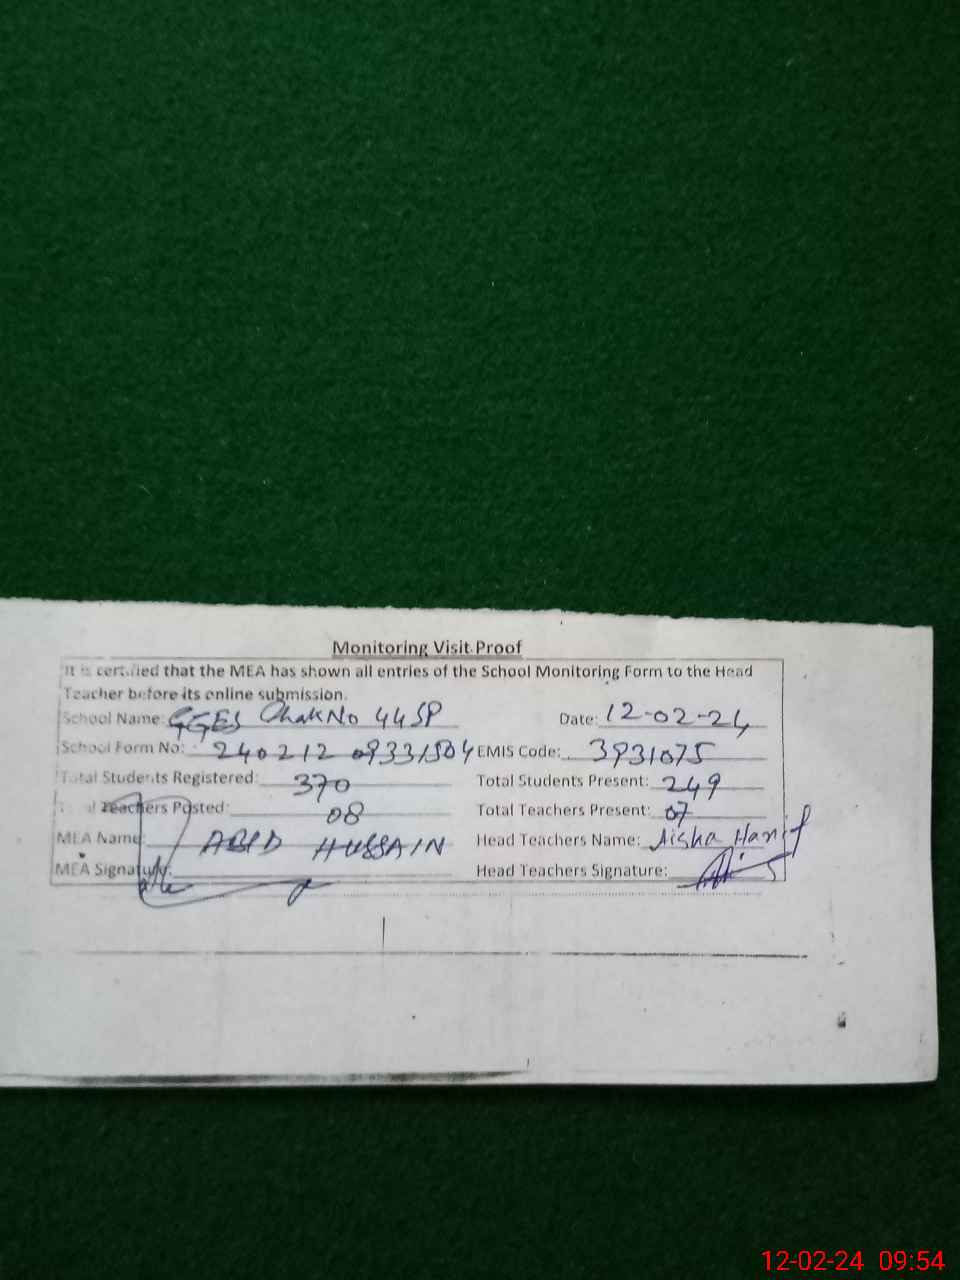 Monitoring Visit Proof
It is certified that the MEA has shown all entries of the School Monitoring Form to the Head
Teacher before its online submission.
School Name: GGES Chak No 44 SP Date: 12-02-24
School Form No: 240212 09331504 EMIS Code: 3931075
Total Students Registered: 370 Total Students Present: 249
Total Teachers Posted: 08 Total Teachers Present: 07
MEA Name: ABID HUSSAIN Head Teachers Name: Aisha Hanif
MEA Signature: Head Teachers Signature:
12-02-24 09:54